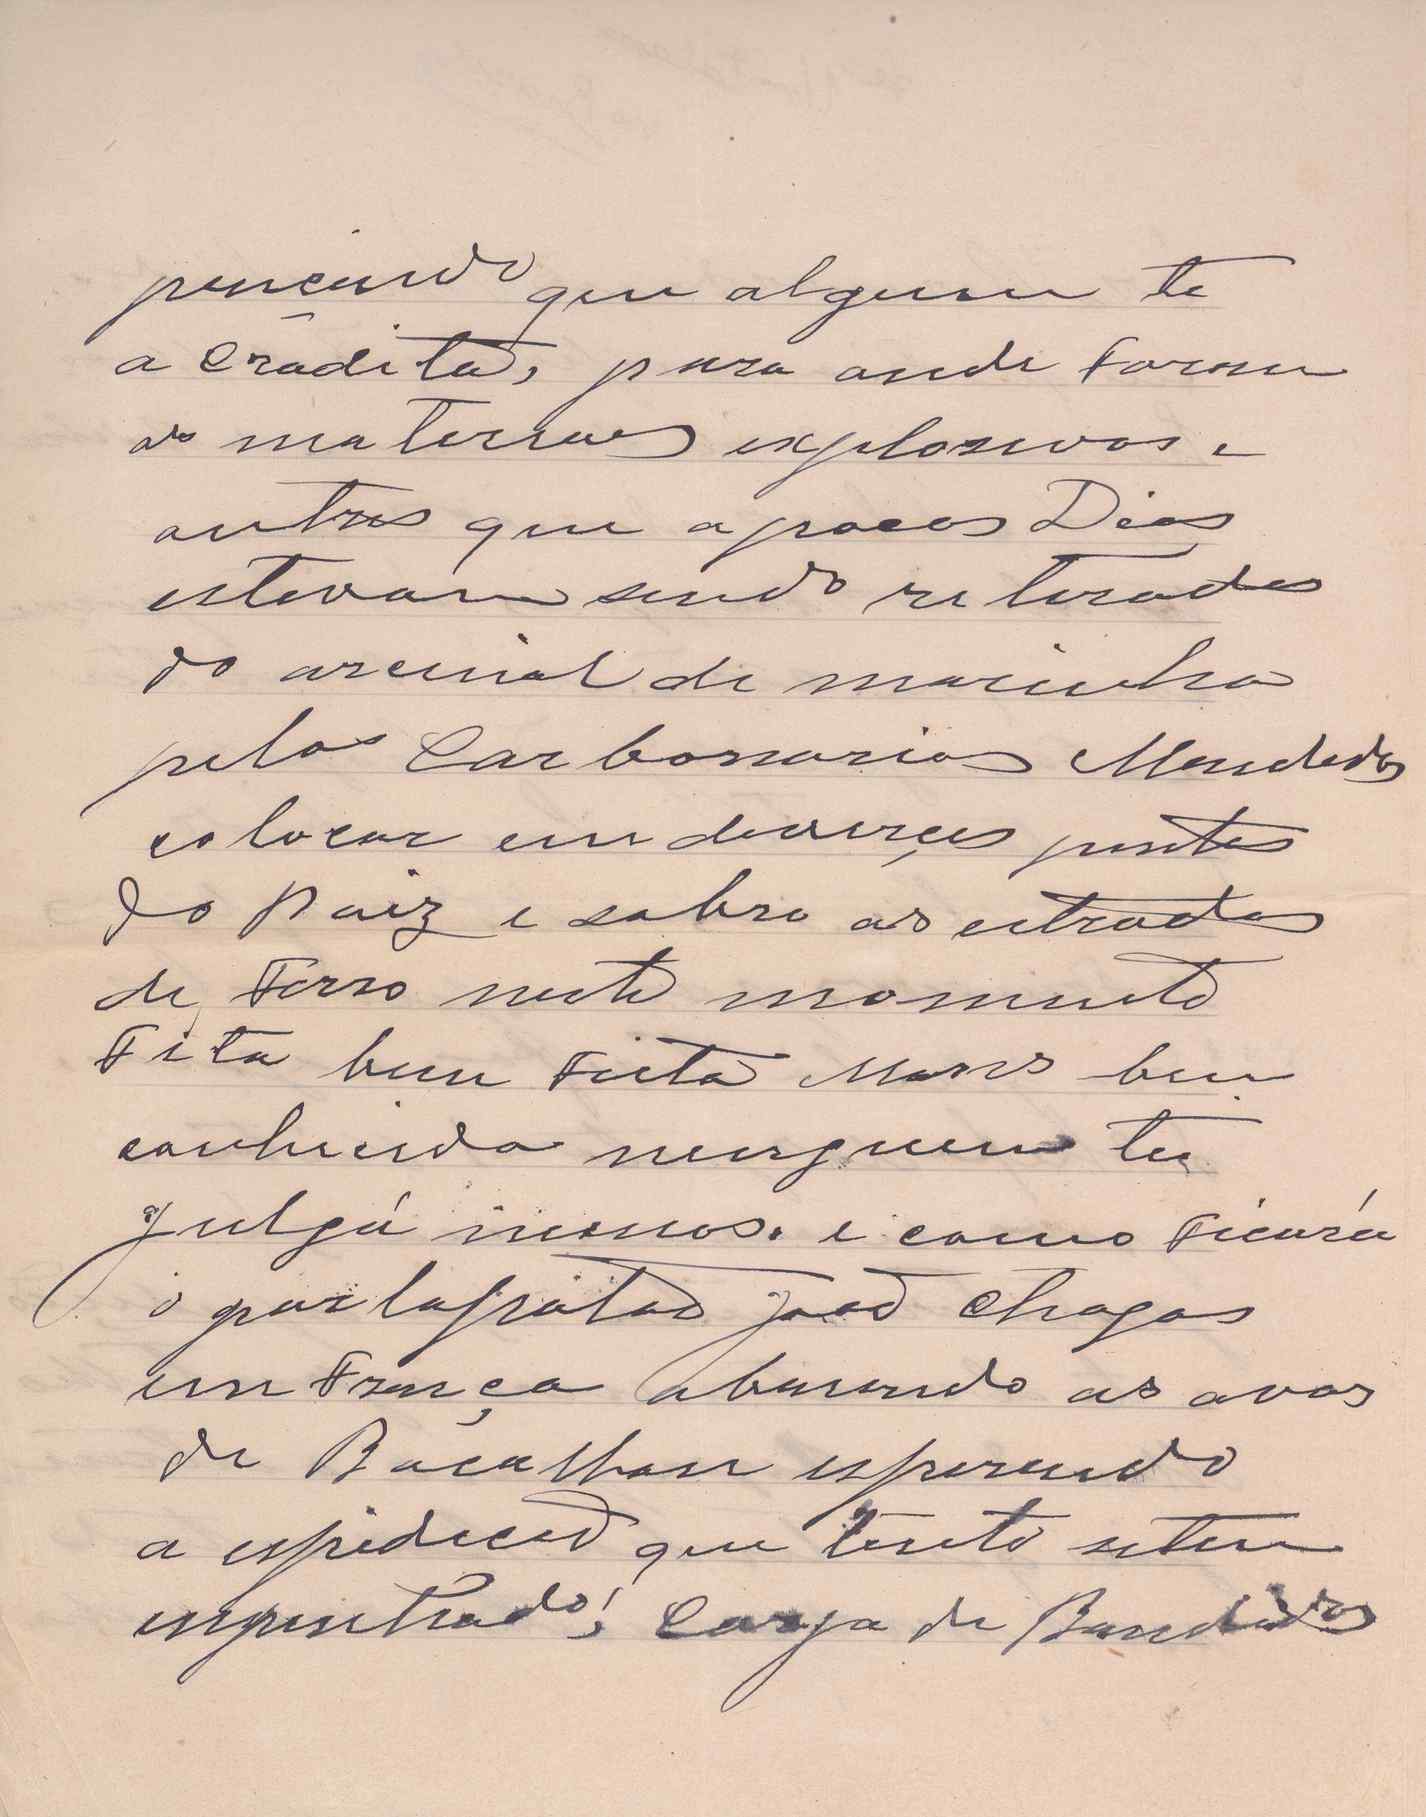 pençando que alguem te
a Cradita, para onde Foram
os materiaes explosivos e
outros que a pocos Dias
estevam sendo retirados
do arcenal de marinha
pelos Carbonarios Mandados
colocar em deverços pontes
do Paiz e sobre as estradas
de Ferro neste momento
Fita bem Feita Mas bem
conhecida ninguem te
julgá menos. e como Ficará
o João Chagas
em França abanando as avas
de Bacalhau esperando
a espedicão que tento
Corja de Bandidos